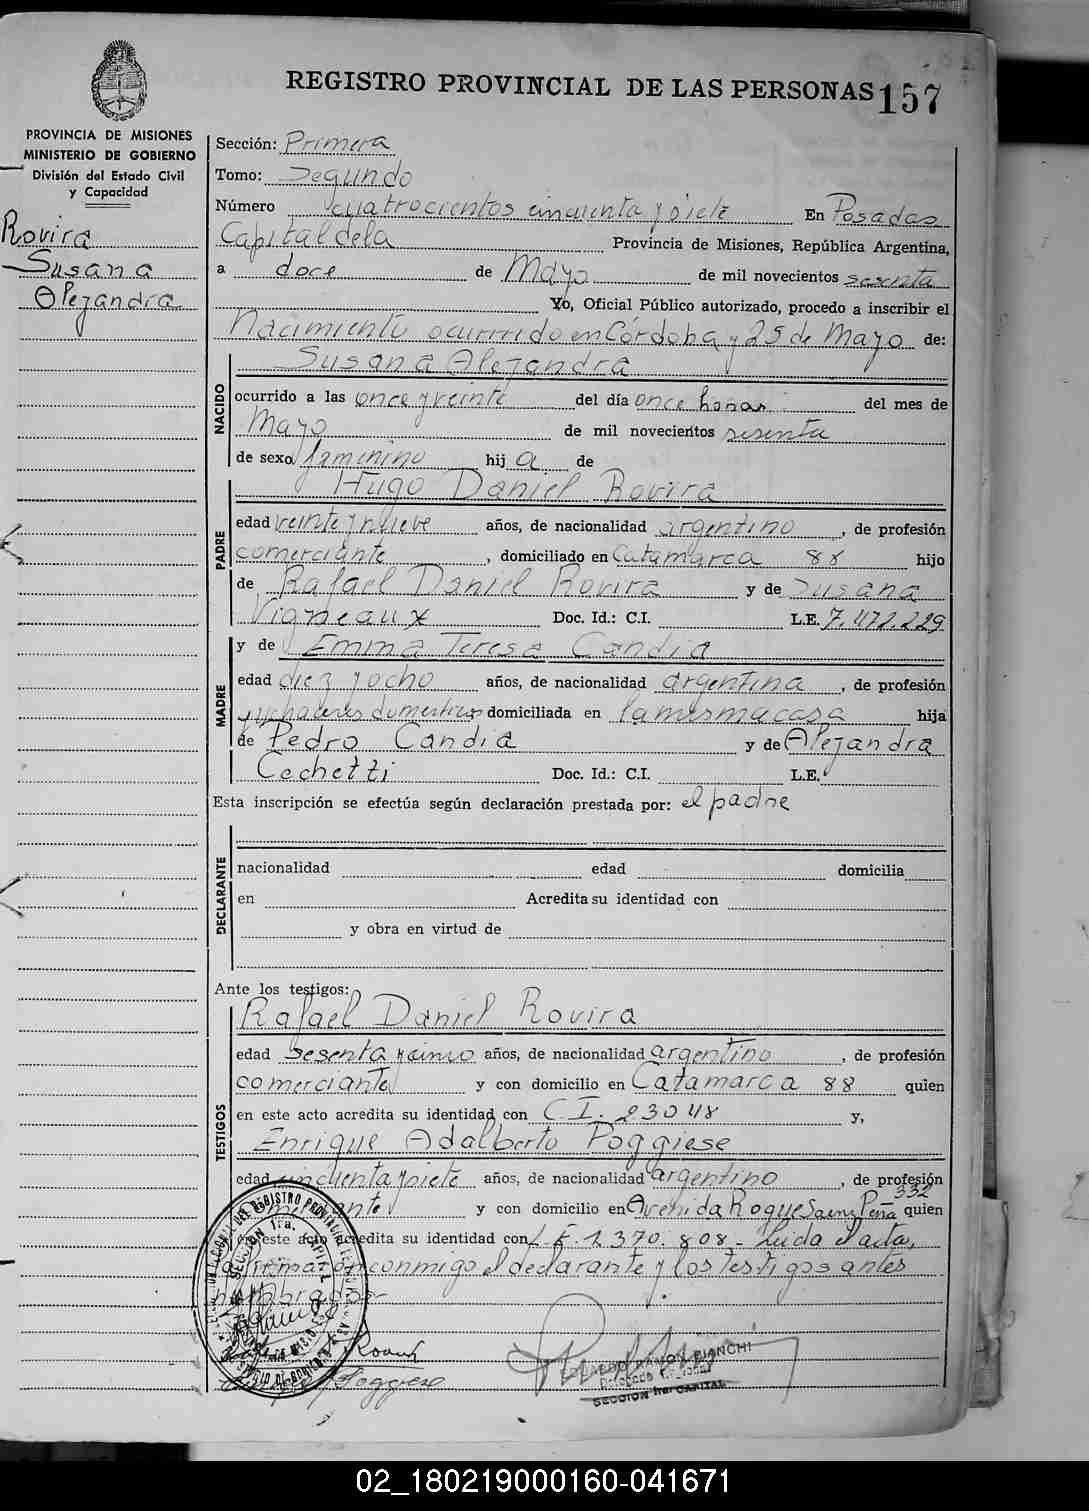 REGISTRO PROVINCIAL DE LAS PERSONAS 157
PROVINCIA DE MISIONES
MINISTERIO DE GOBIERNO
División del Estado Civil
y Capacidad
Rovira
Susana
Alejandra
Sección: Primera
Tomo: Segundo
Número cuatrocientos cincuenta y siete En Posadas
Capital de la Provincia de Misiones, República Argentina,
a doce de Mayo de mil novecientos sesenta
Yo, Oficial Público autorizado, procedo a inscribir el
Nacimiento ocurrido en Córdoba y 25 de Mayo de:
Susana Alejandra
NACIDO
ocurrido a las once y veinte del día once horas del mes de
Mayo de mil novecientos sesenta
de sexo feminino hij a de
Hugo Daniel Rovira
PADRE
edad veinte y nueve años, de nacionalidad argentino, de profesión
comerciante, domiciliado en Catamarca 88 hijo
de Rafael Daniel Rovira y de Susana
Vigneaux Doc. Id.: C.I. L.E. 7.472.229
y de Emma Teresa Candia
MADRE
edad diez y ocho años, de nacionalidad argentina, de profesión
quehaceres domesticos domiciliada en la misma casa hija
de Pedro Candia y de Alejandra
Cechetti Doc. Id.: C.I. L.E.
Esta inscripción se efectúa según declaración prestada por: el padre
DECLARANTE
nacionalidad edad domicilia
en Acredita su identidad con
y obra en virtud de
Ante los testigos:
Rafael Daniel Rovira
TESTIGOS
edad sesenta y cinco años, de nacionalidad argentino, de profesión
comerciante y con domicilio en Catamarca 88 quien
en este acto acredita su identidad con C.I. 23048 y,
Enrique Adalberto Poggiese
edad cincuenta y siete años, de nacionalidad argentino, de profesión
y con domicilio en Avenida Roque Saenz Peña 332 quien
en este acto acredita su identidad con L.E. 1.370.808- Leida el acta,
conmigo el declarante y los testigos antes
nombrados
Rovira
Poggiese
EDUARDO RAMON BIANCHI
SECCION 1ra. CAPITAL
02_180219000160-041671